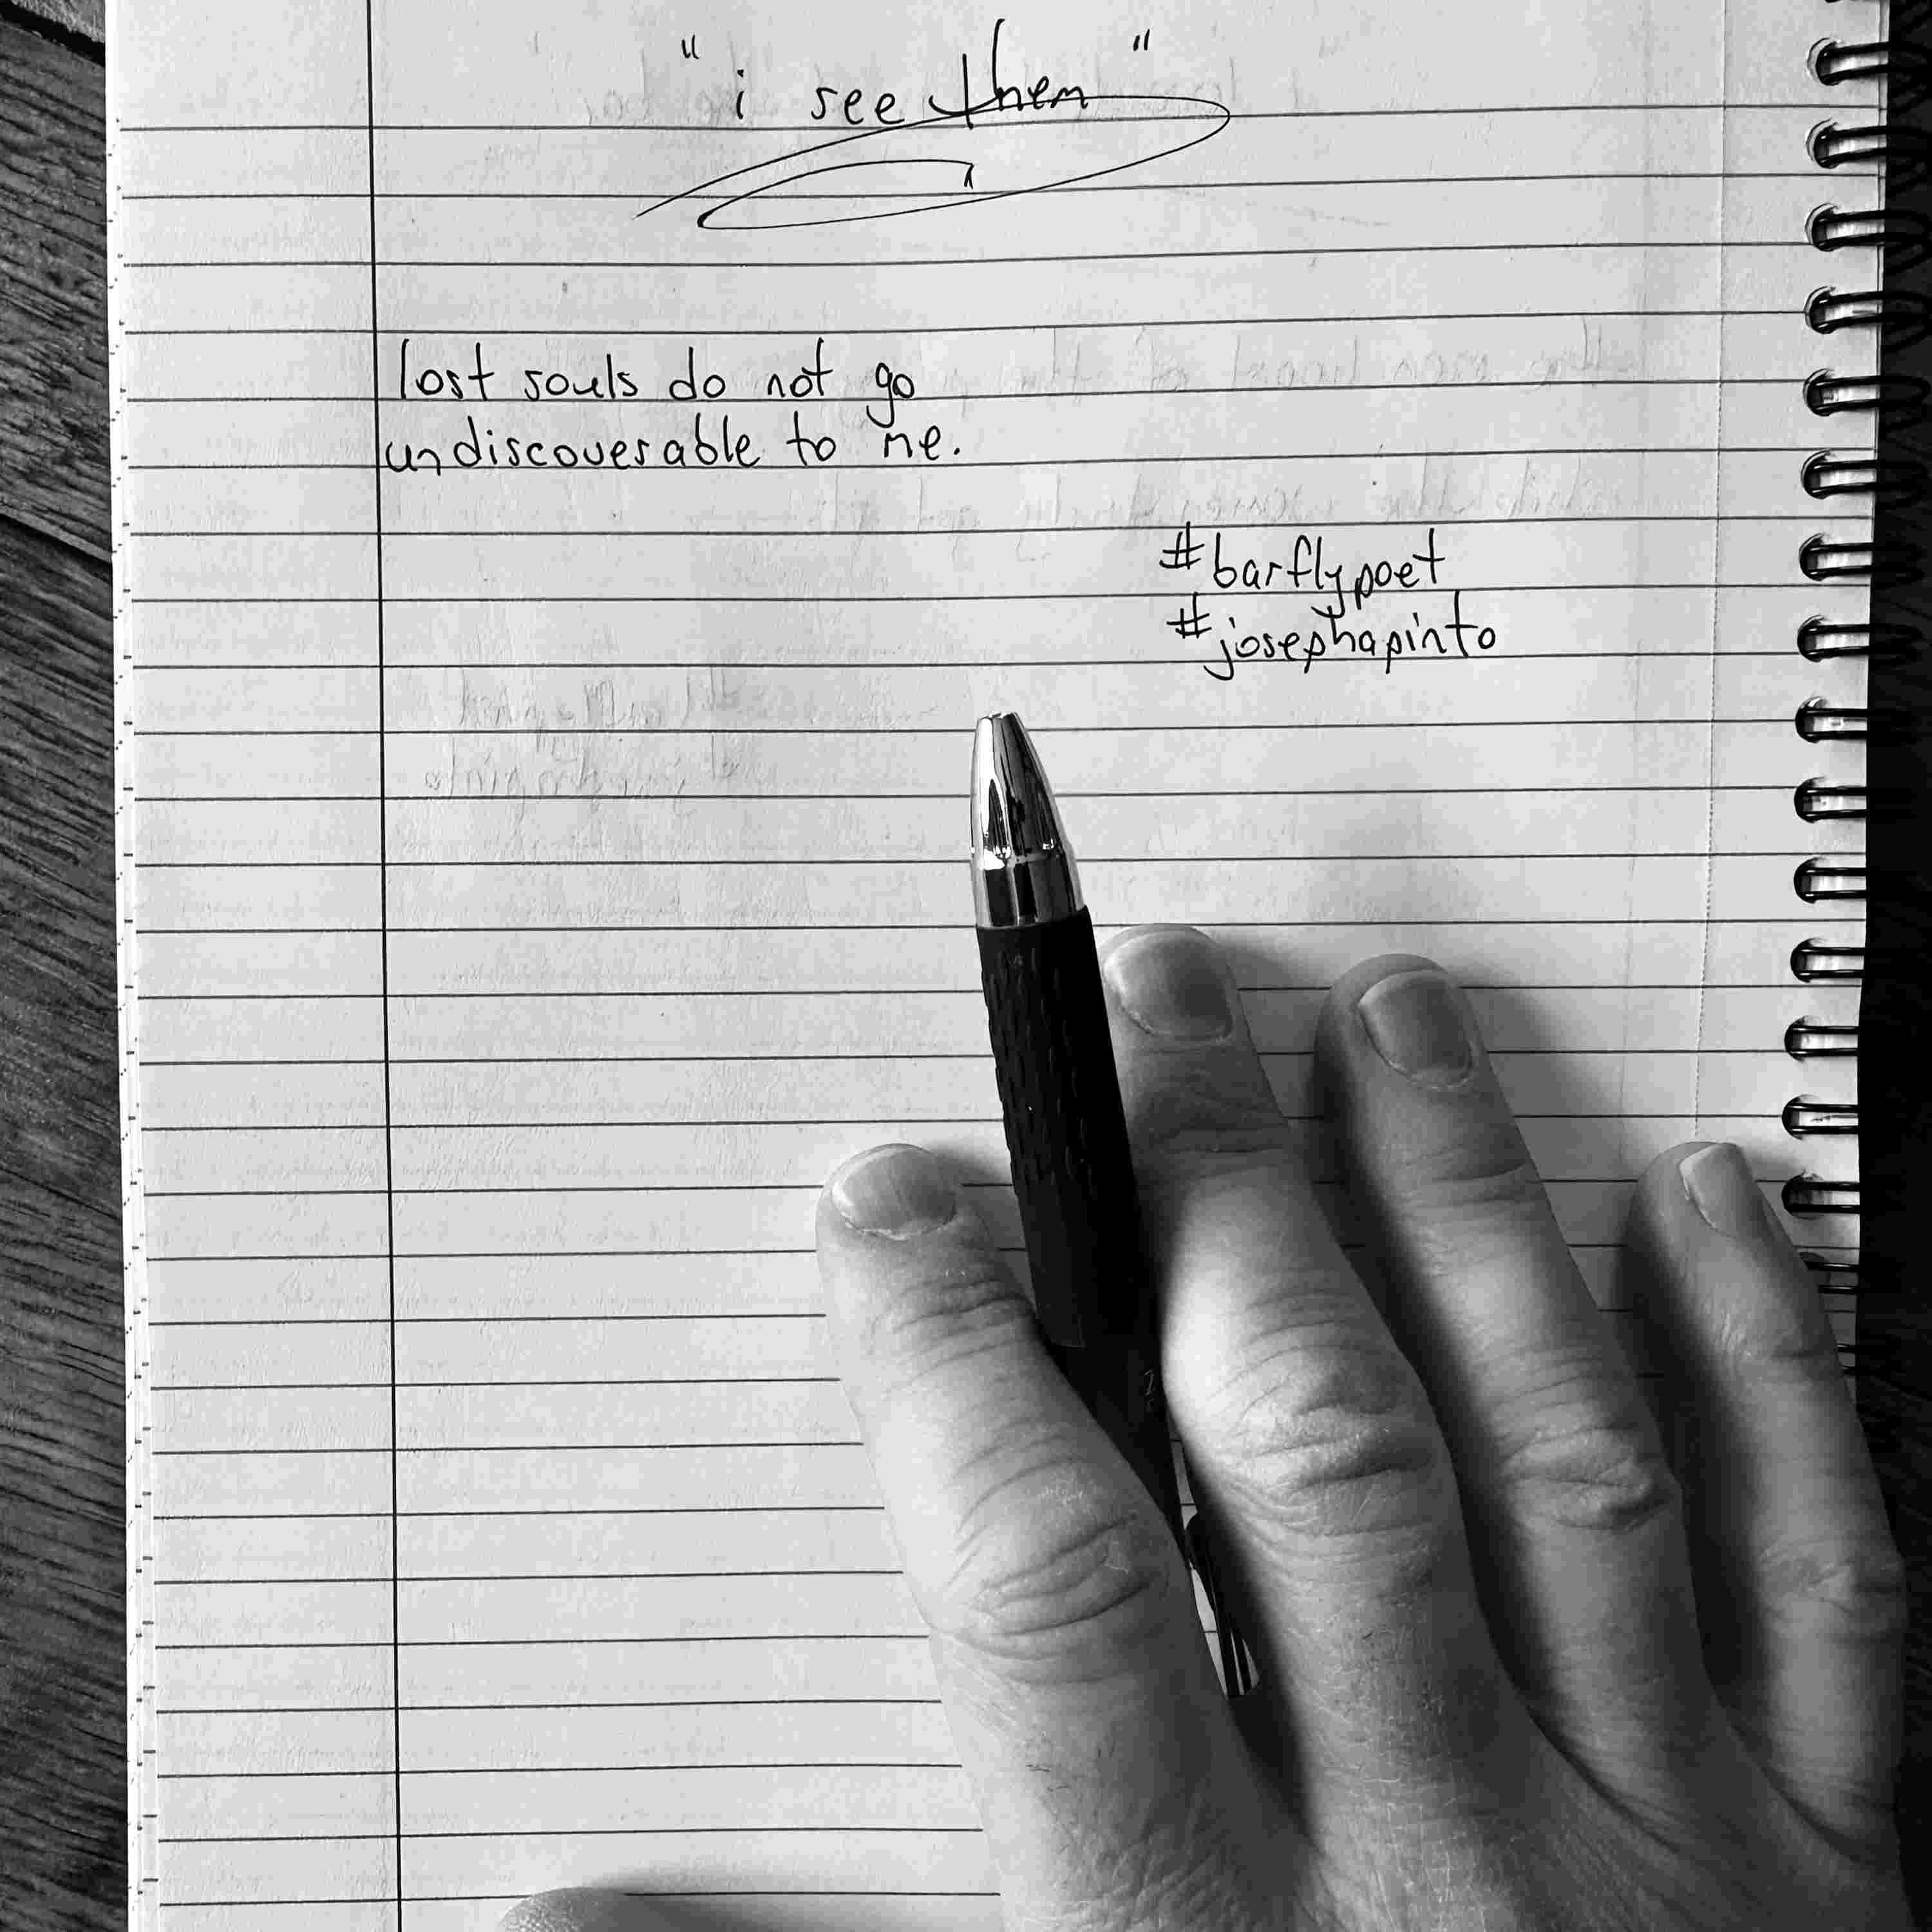 " i see them "
lost souls do not go
undiscoverable to me.
#barflypoet
#josephapinto